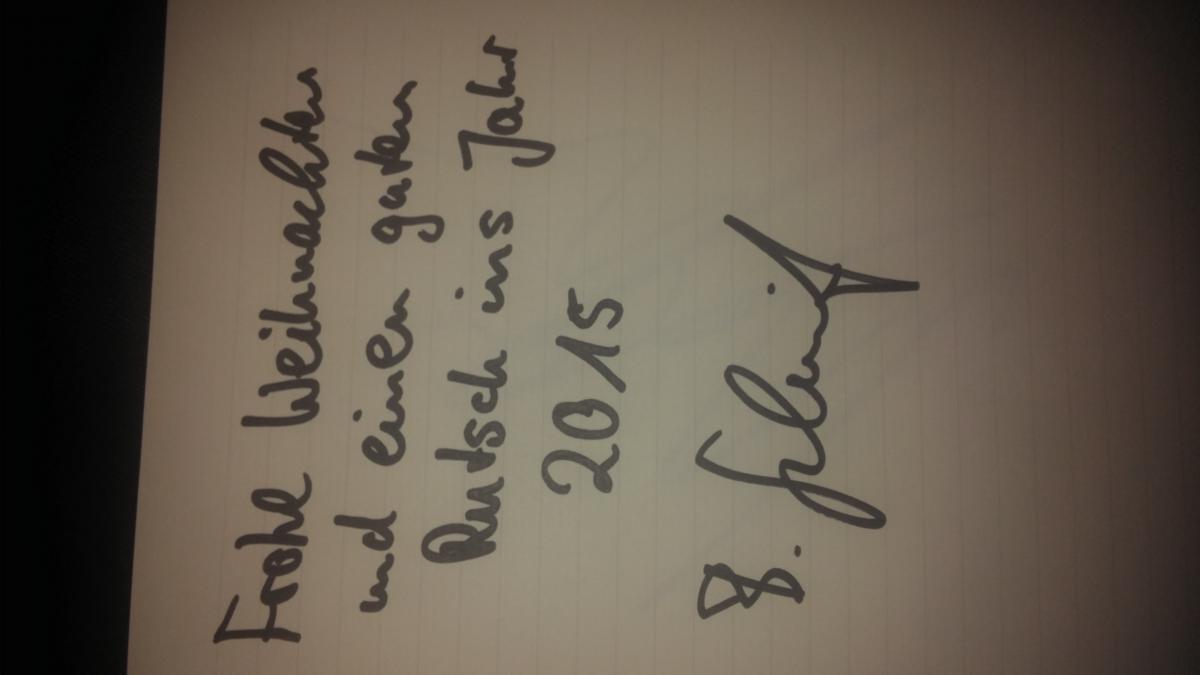 Frohe Weihnachten
und einen guten
Rutsch ins Jahr
2015